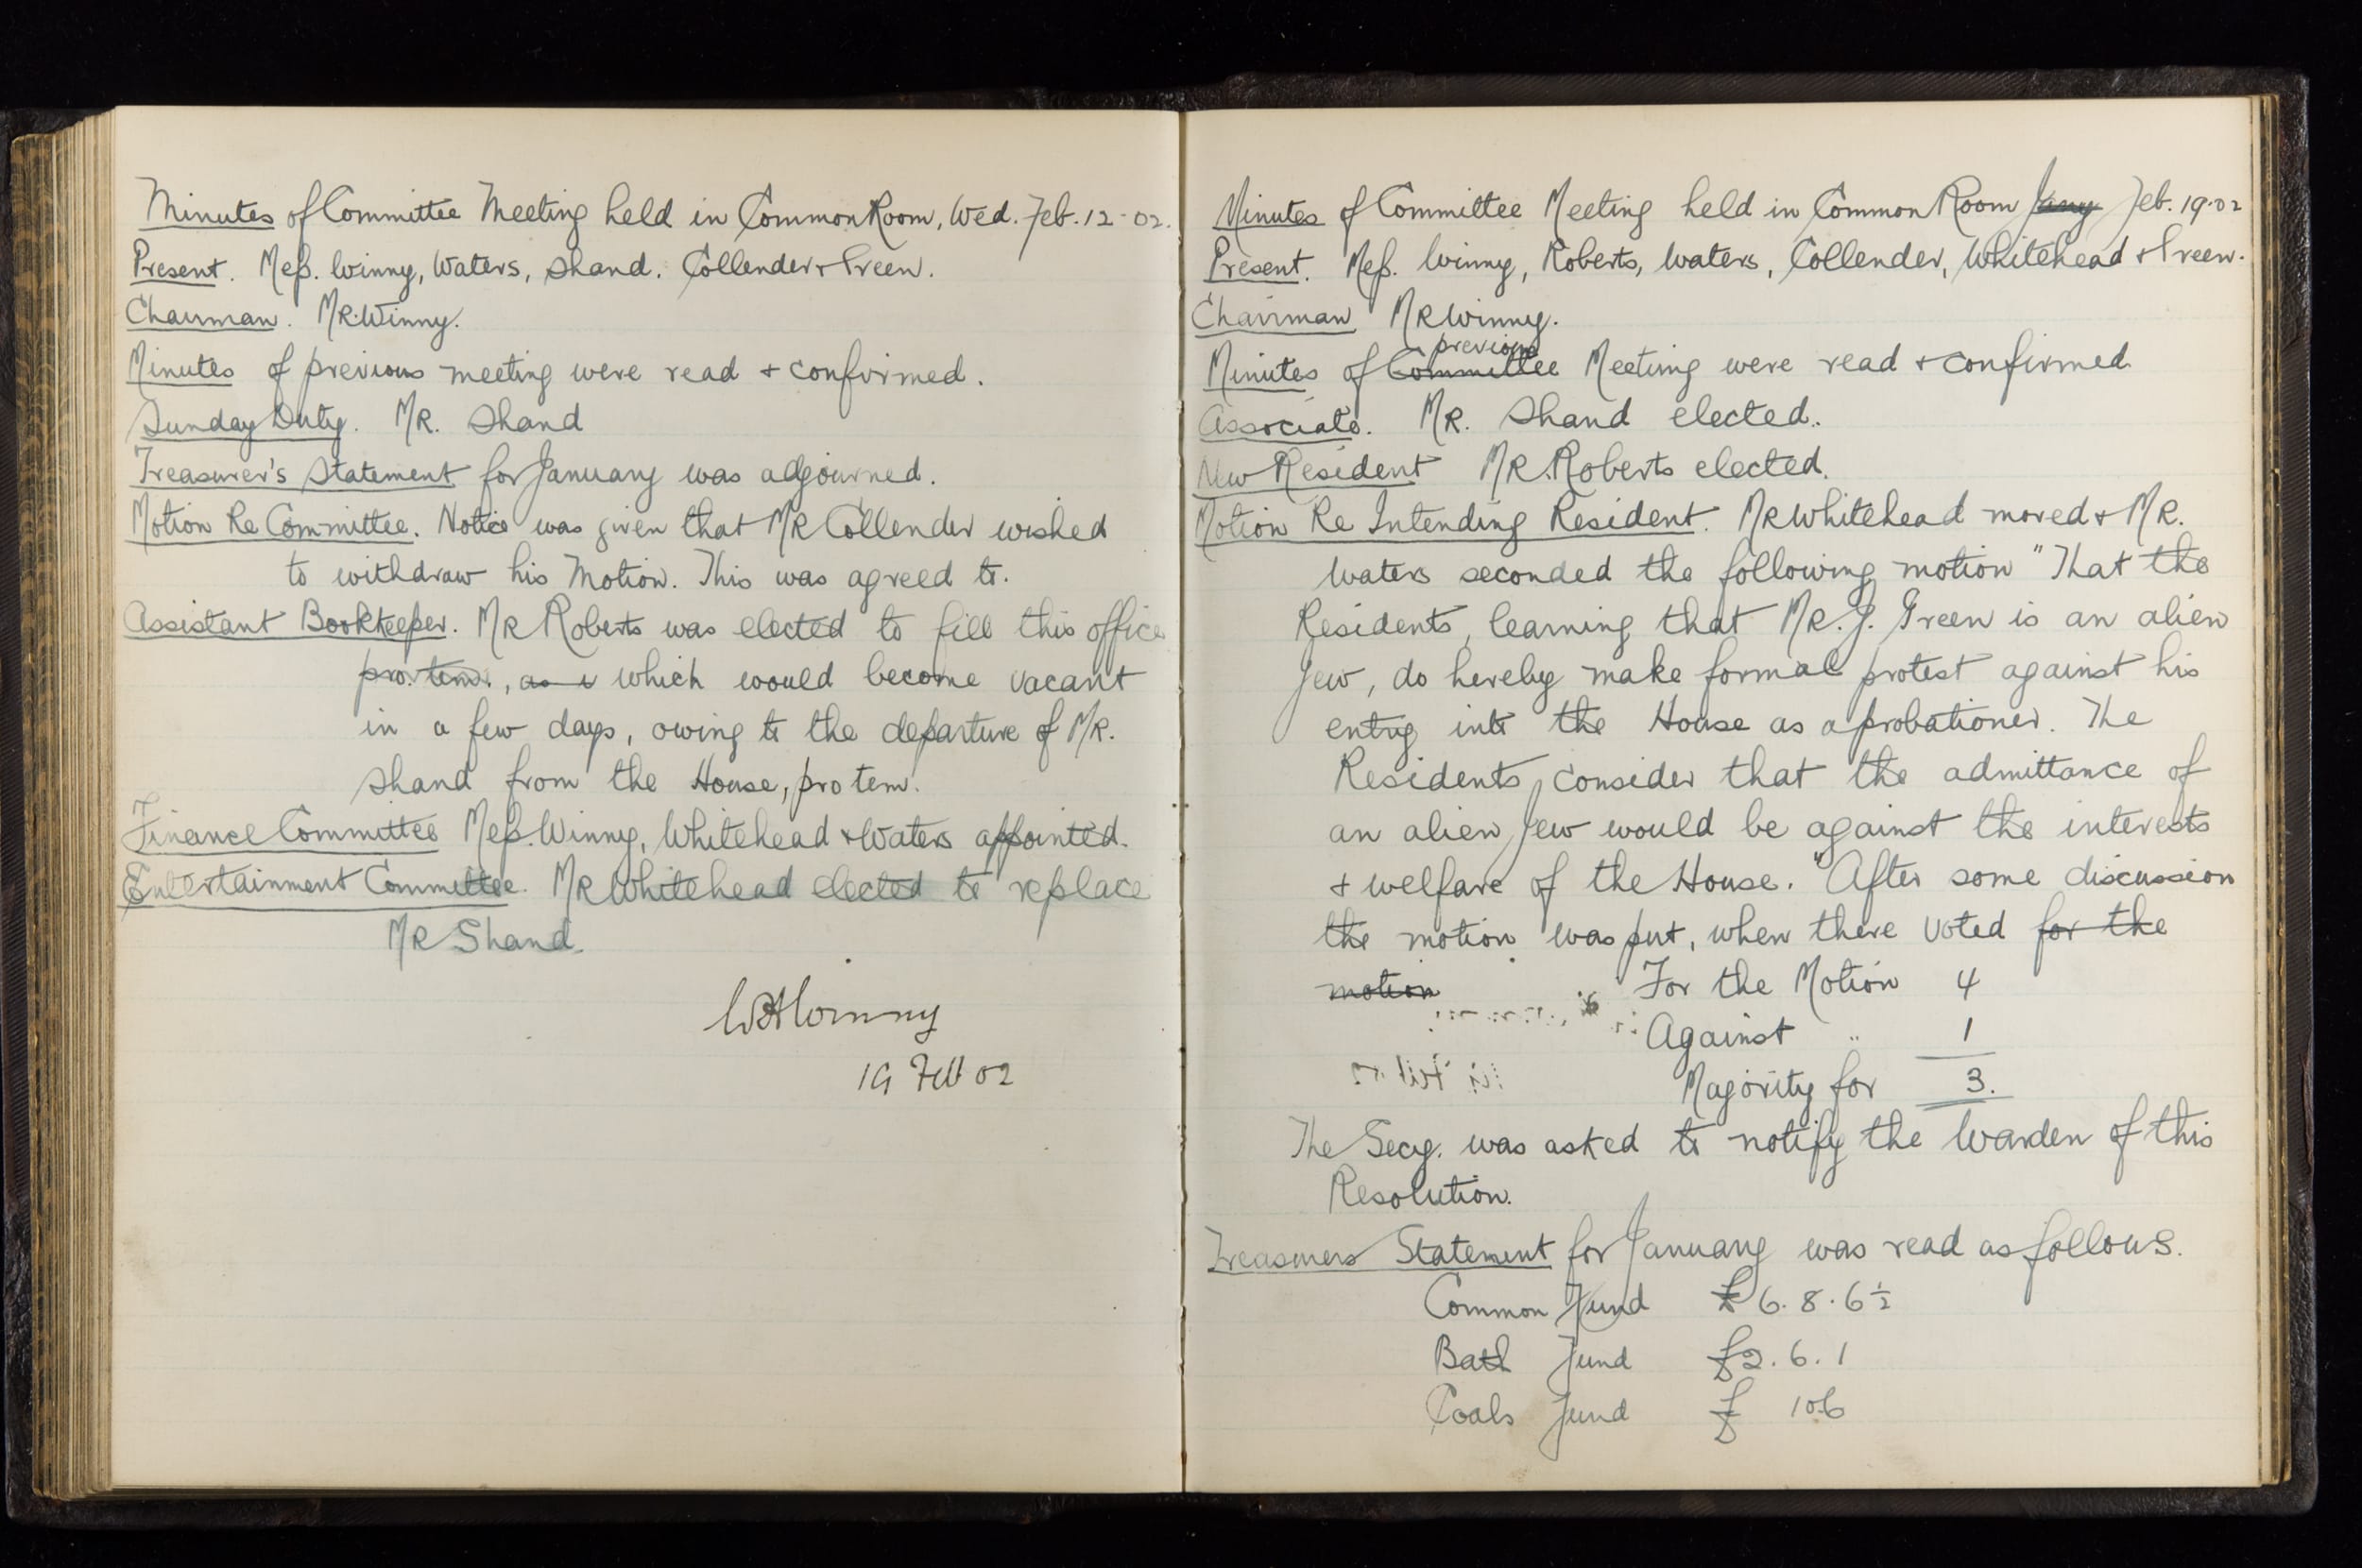 Minutes of Committee Meeting held in Common Room, Wed. Feb. 12-02.
Present. Meß. Winny, Waters, Shand. Collender + Green.
Chairman. MR. Winny.
Minutes of previous meeting were read + confirmed.
Sunday Duty. MR. Shand
Treasurer's Statement for January was adjourned.
Motion Re Committee. Notice was given that MR Collender wished
to withdraw his Motion. This was agreed to.
Assistant Bookkeeper. MR Roberts was elected to fill this office
pro. tem., as i which would become vacant
in a few days, owing to the departure of MR.
Shand from the House, pro tem.
Finance Committee Meß. Winny, Whitehead + Waters appointed.
Entertainment Committee. MR Whitehead elected to replace
MR Shand.
WH Winny
19 Feb 02
Minutes of Committee Meeting held in Common Room Jany Feb. 19.02
Present. Meß. Winny, Roberts, Waters, Collender, Whitehead + Green.
Chairman MR Winny.
previous
Minutes of Committee Meeting were read + confirmed
Associate. MR. Shand elected.
New Resident MR. Roberts elected.
Motion Re Intending Resident. MR Whitehead moved + MR.
Waters seconded the following motion "That the
Residents, learning that MR. J. Green is an alien
Jew, do hereby make formal protest against his
entry into the House as a probationer. The
Residents consider that the admittance of
an alien Jew would be against the interests
+ welfare of the House." After some discussion
the motion was put, when there voted for the
motion For the Motion 4
Against " 1
Majority for 3.
The Secy. was asked to notify the Warden of this
Resolution.
Treasurers Statement for January was read as follows.
Common Fund £6. 8. 6½
Bath Fund £2. 6. 1
Coals Fund £ 10.6